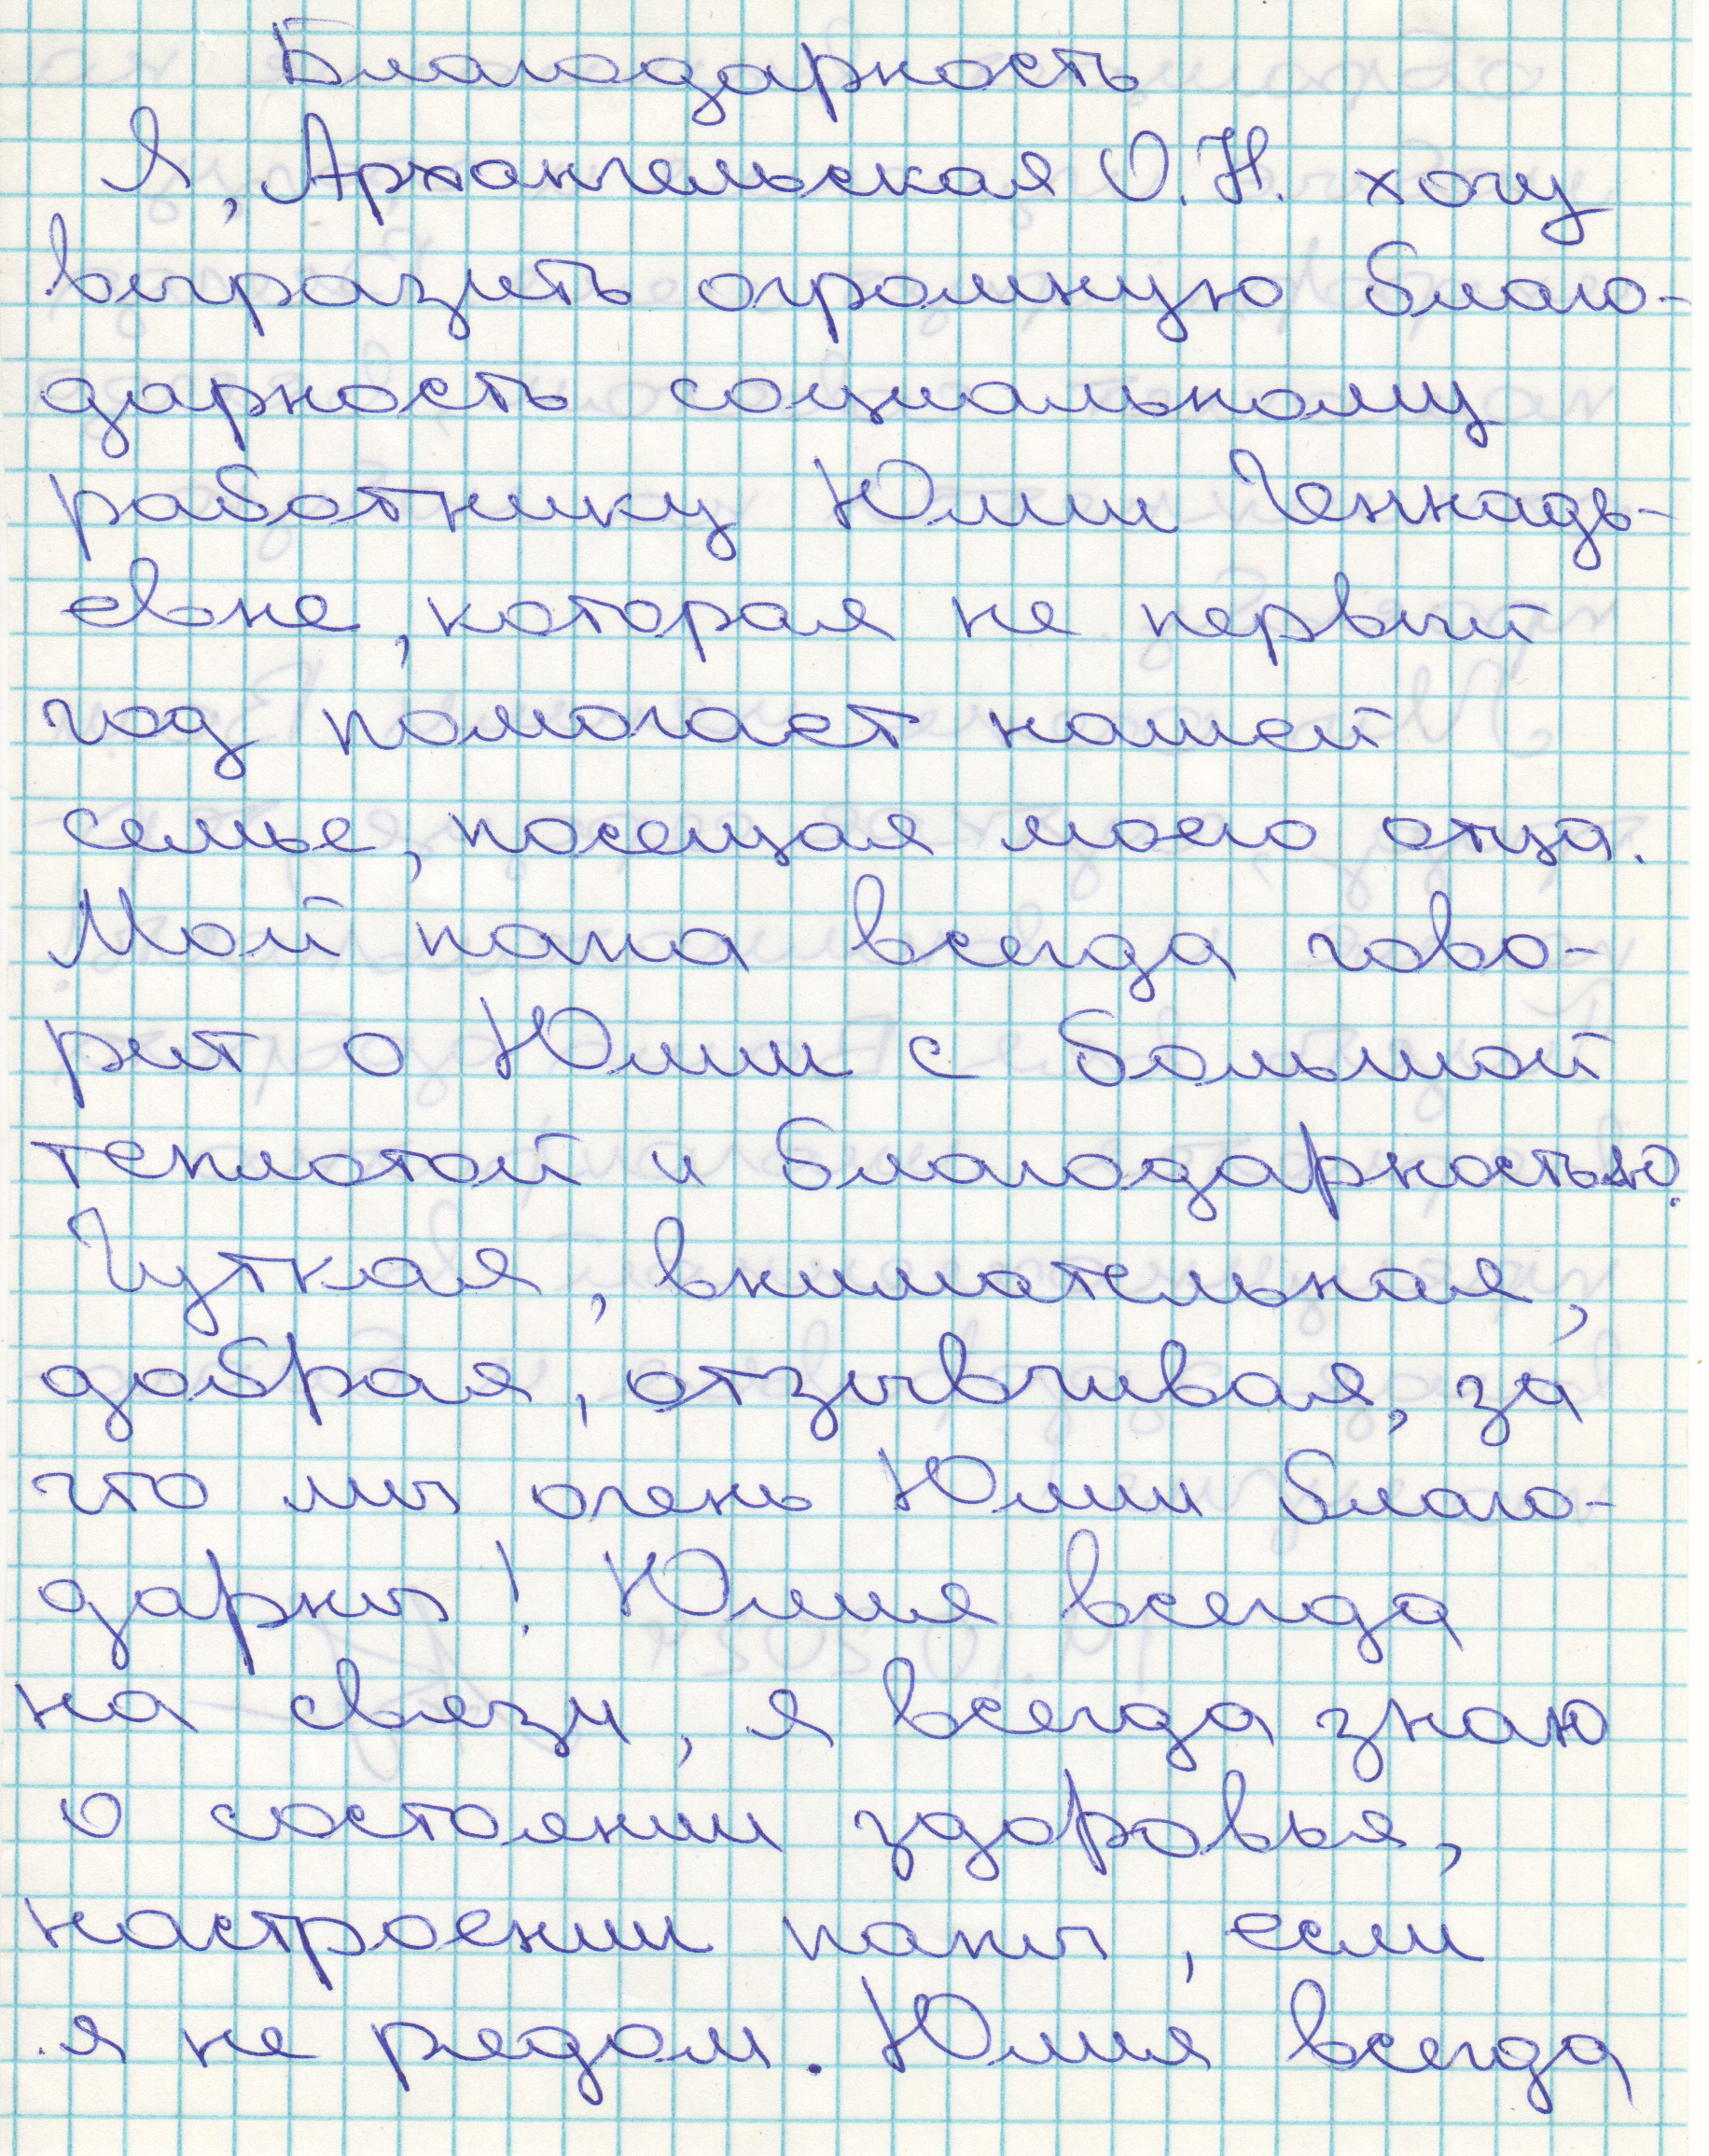 Благодарность
Я, Архангельская О.Н. хочу
выразить огромную благо-
дарность социальному
работнику Юлии Геннадь-
евне, которая не первый
год помогает нашей
семье, посещая моего отца.
Мой папа всегда гово-
рит о Юлии с большой
теплотой и благодарностью.
Чуткая, внимательная,
добрая, отзывчивая, за
что мы очень Юлии благо-
дарны! Юлия всегда
на связи, я всегда знаю
о состоянии здоровья,
настроении папы, если
я не рядом. Юлия всегда